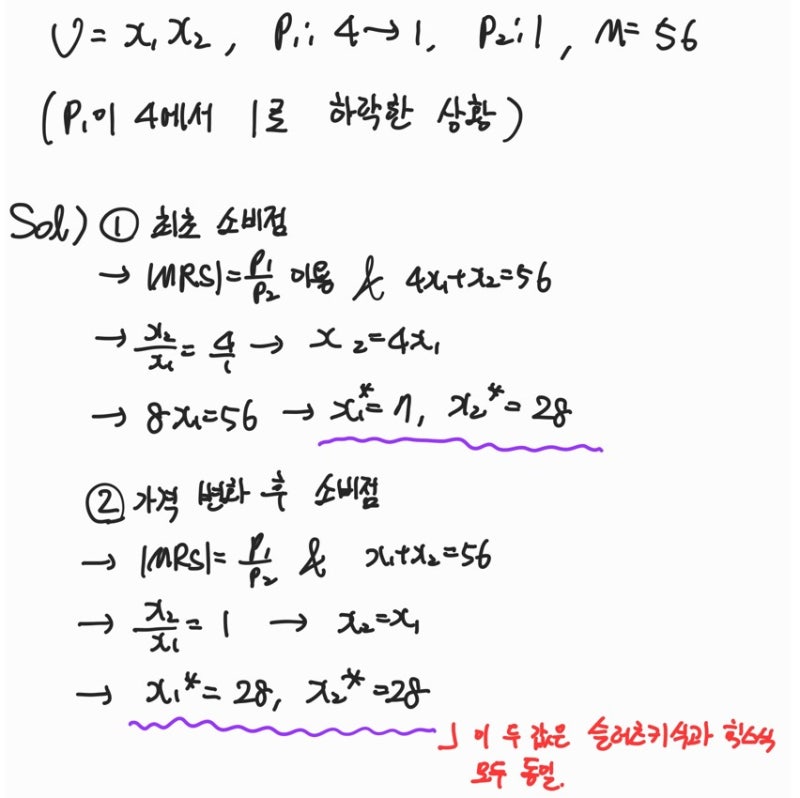 U = x₁x₂, P₁: 4→1, P₂: 1, M = 56
(P₁이 4에서 1로 하락한 상황)
Sol) ① 최초 소비점
→ |MRS| = P₁/P₂ 이용 & 4x₁+x₂=56
→ x₂/x₁ = 4/1 → x₂=4x₁
→ 8x₁=56 → x₁*=7, x₂*=28
② 가격 변화 후 소비점
→ |MRS| = P₁/P₂ & x₁+x₂=56
→ x₂/x₁ = 1 → x₂=x₁
→ x₁*=28, x₂*=28
↲ 이 두 값은 슬러츠키식과 힉스식
모두 동일.